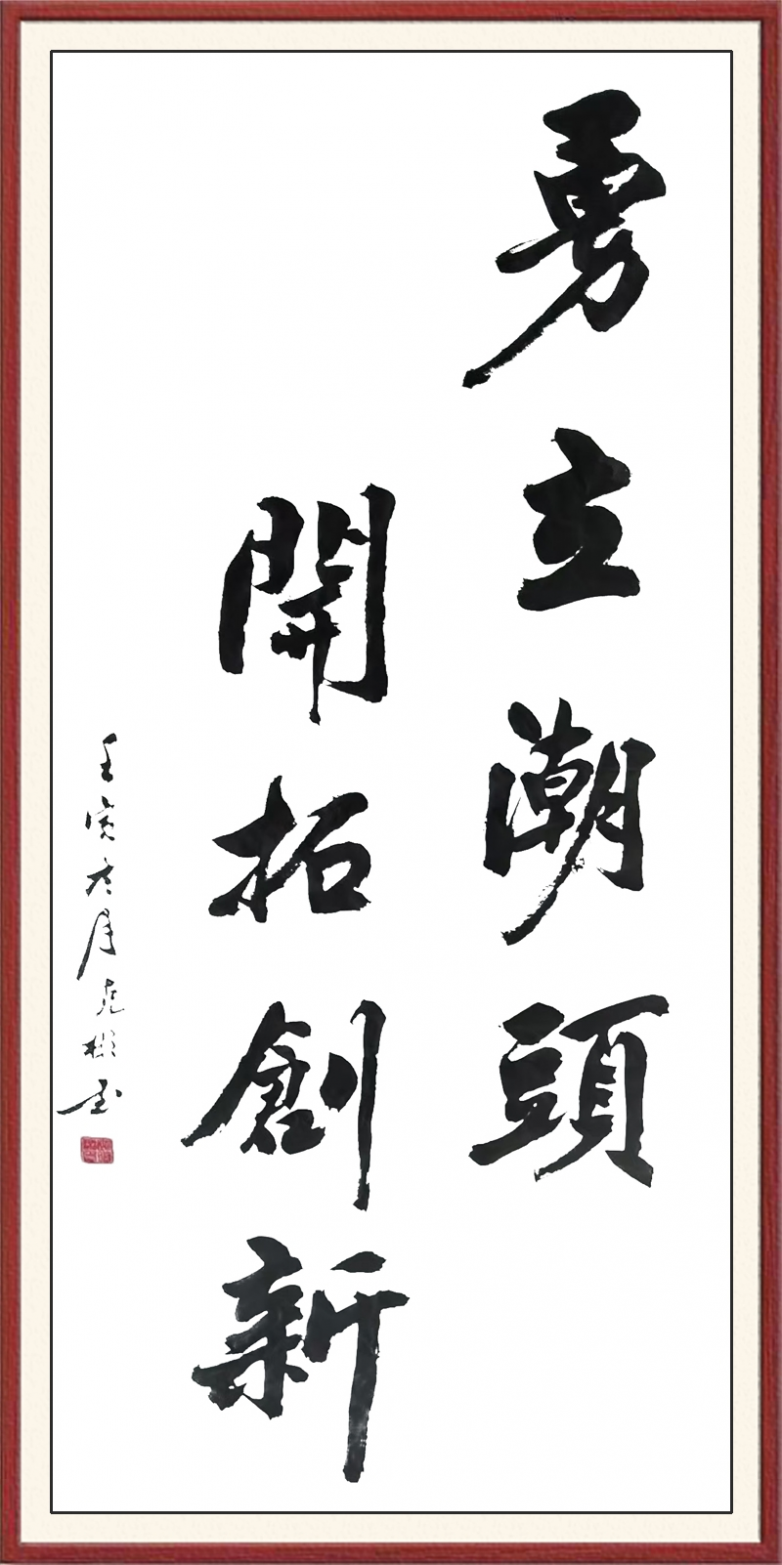 勇立潮頭
開拓創新
壬寅六月克彬书